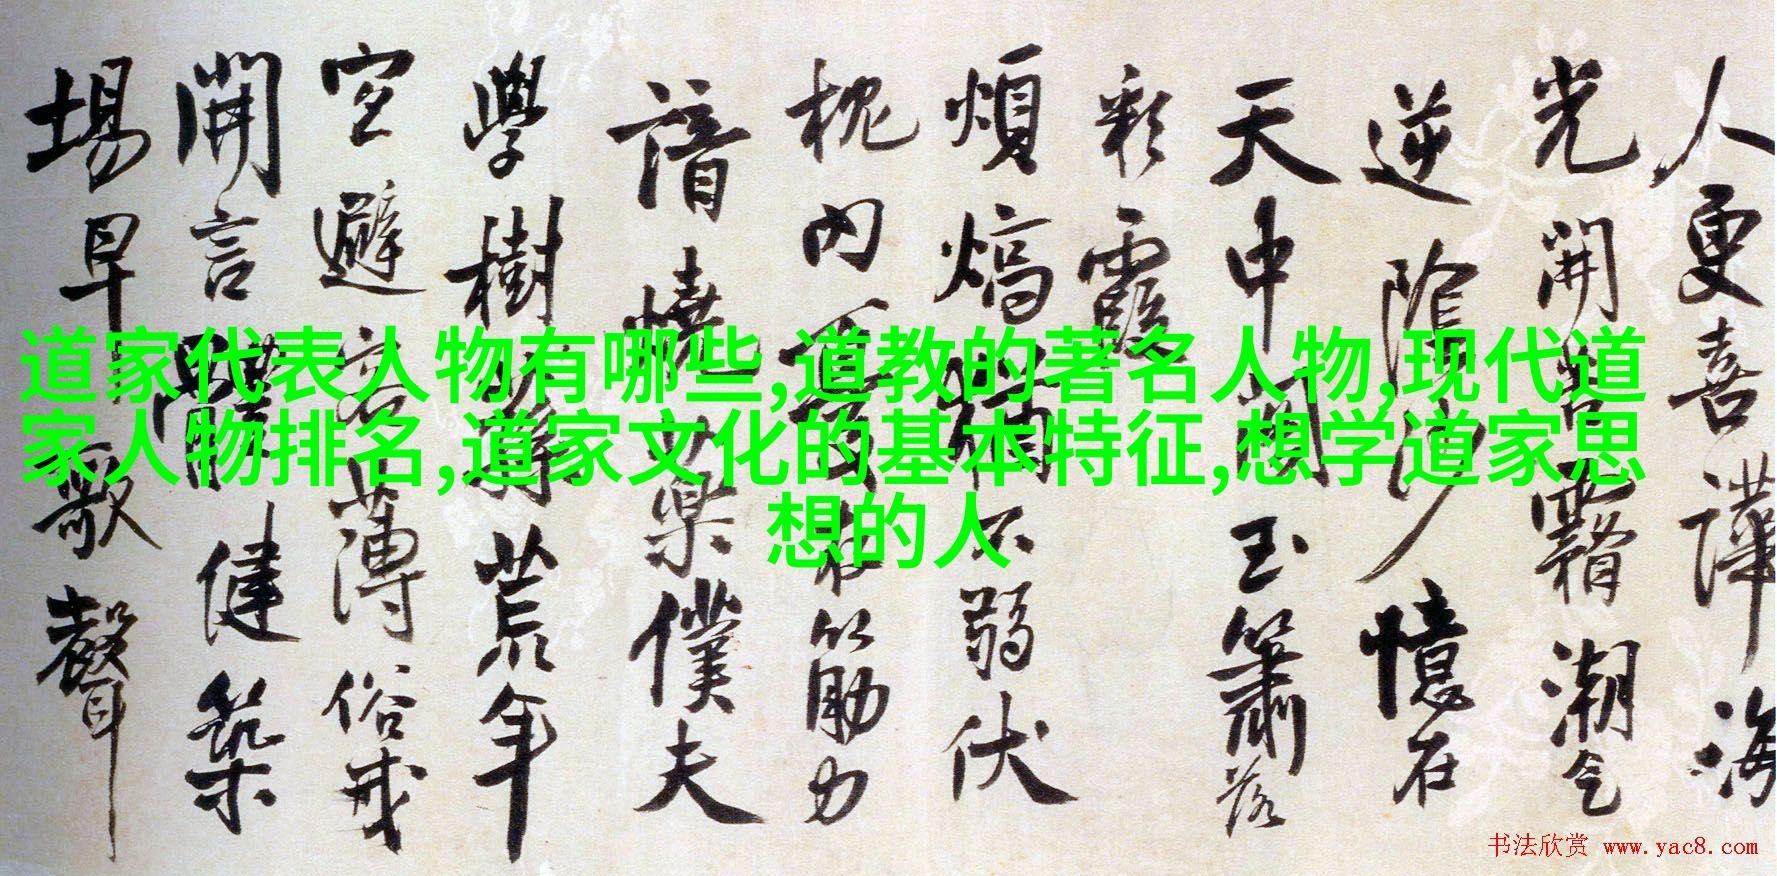 道家代表人物有哪些,道教的著名人物,现代道
家人物排名,道家文化的基本特征,想学道家思
想的人
人更喜譁海
光開霽潮
逆陰沙憶在
天中開玉簫落
彩霞
煩熇不弱伏
枕内筋力
諳樂僕夫
學樹荒年
空避客薄俗戒
開言健築
場早歌聲
书法欣赏 www.yac8.com